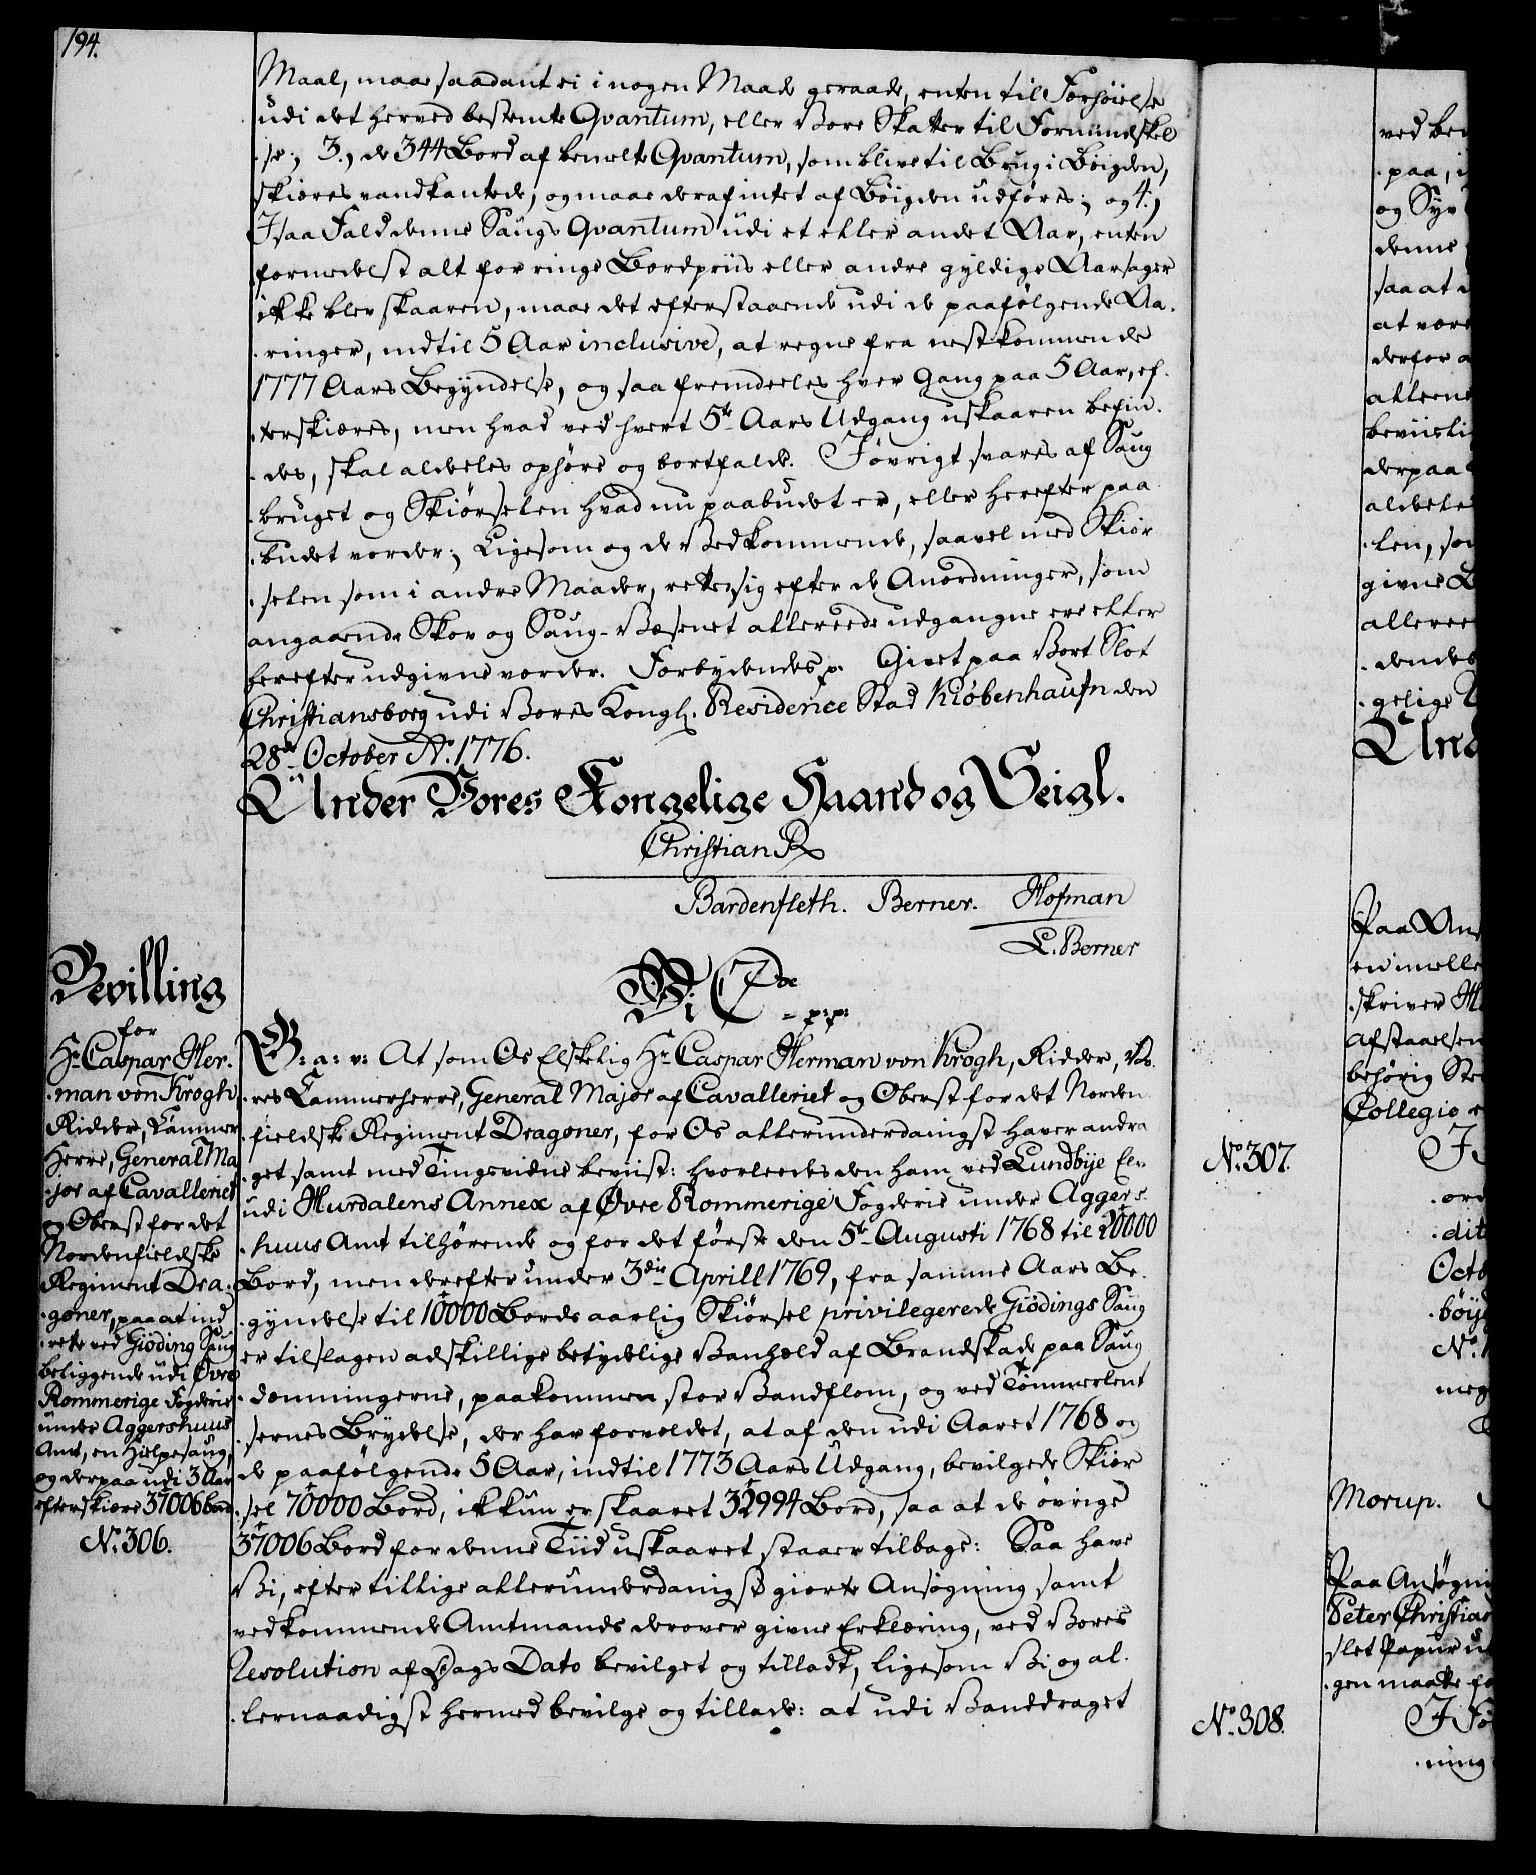 194.
Maal, maae saadant ei i nogen Maade geraade, enten til Forhøielse
udi det herved bestemte Qvantum, eller Vore Skatter til Formindskel
se; 3., de 344 Bord af bemelte Qvantum, som blive til Brug i Böigden,
skiæres vandkantede, og maae deraf intet af Böigden udføres; og 4.,
I saa Fald denne Saugs Qvantum udi et eller andet Aar, enten
formedelst alt for ringe Bordpriis eller andre gyldige Aarsager
ikke blev skaaren, maae det efterstaaende udi de paafølgende Aa-
ringer, indtil 5 Aar inclusive, at regne fra nestkommende
1777 Aars Begyndelse, og saa fremdeeles hver Gang paa 5 Aar, ef-
terskiæres, men hvad ved hvert 5te Aars Udgang uskaaren befin-
des, skal aldeles ophøre og bortfalde. I øvrigt svares af Saug
bruget og Skiørselen hvad nu paabudet er, eller herefter paa
budet vorder; Ligesom og de Vedkommende, saavel med Skiør
selen som i andre Maader, rette sig efter de Anordninger, som
angaaende Skov og Saug-Væsenet allereede udgangne ere eller
herefter udgivne vorder. Forbydendes p. Givet paa Vort Slot
Christiansborg udi Vores Kongl. Residence Stad Kiøbenhaufn den
28de October Ao. 1776.
Under Vores Kongelige Haand og Seigl.
Christian R
Bardenfleth. Berner. Hofman
L. Berner
Bevilling
for
Hr. Caspar Her-
man von Krogh
Ridder, Cammer
Herre, General Ma
jor af Cavalleriet
og Oberst for det
Nordenfieldske
Regiment Dra-
goner, paa at ind
rette ved Giöding Saug
beliggende udi Øvre
Rommerige Fogderie
under Aggershuus
Amt, en Hielpesaug,
og derpaa udi 3 Aar
efterskiære 37006 Bord
No. 306.
Vi C 7de
p:p:
G: a: v: At som Os Elskelig Hr. Caspar Herman von Krogh, Ridder, Vo-
res Cammerherre, General Major af Cavalleriet og Oberst for det Norden
fieldske Regiment Dragoner, for Os allerunderdanigst haver andra
get samt med Tingsvidne beviist: hvorleedes den ham ved Lundbye Elv
udi Hurdalens Annex af Øvre Rommerige Fogderie under Aggers-
huus Amt tilhørende og for det første den 5te Augusti 1768 til 20000
Bord, men derefter under 3die Aprill 1769, fra samme Aars Be-
gyndelse til 10000 Bords aarlig Skiørsel privilegerede Giödings Saug
er tilslagen adskillige betydelige Vanheld af Brandskade paa Saug
domningerne, paakommen stor Vandflom, og ved Tömmerlent
sernes Brydelse, der har forvoldet, at af den udi Aaret 1768 og
de paafølgende 5 Aar, indtil 1773 Aars Udgang, bevilgede Skiør
sel 70000 Bord, ikkun er skaaret 32994 Bord, saa at de øvrige
37006 Bord for denne Tiid uskaaret staaer tilbage: Saa have
Vi, efter tillige allerunderdanigst giorte Ansøgning samt
vedkommende Amtmands derover givne Erklæring, ved Vores
Resolution af Dags Dato bevilget og tilladt, ligesom Vi og al-
lernaadigst hermed bevilge og tillade: at udi Vanddraget
No. 307.
No. 308.
paa, i
og Syv
denne
saa at
at være
derfor a
derpaa
len, so
givne B
alleree
dendes
gelige
Und
Paa An
skriver
Afstaaelsen
behørig
Collegio
Octo
Morup.
Paa Ansøgni
Peter Christia
gen maatte fo
ning